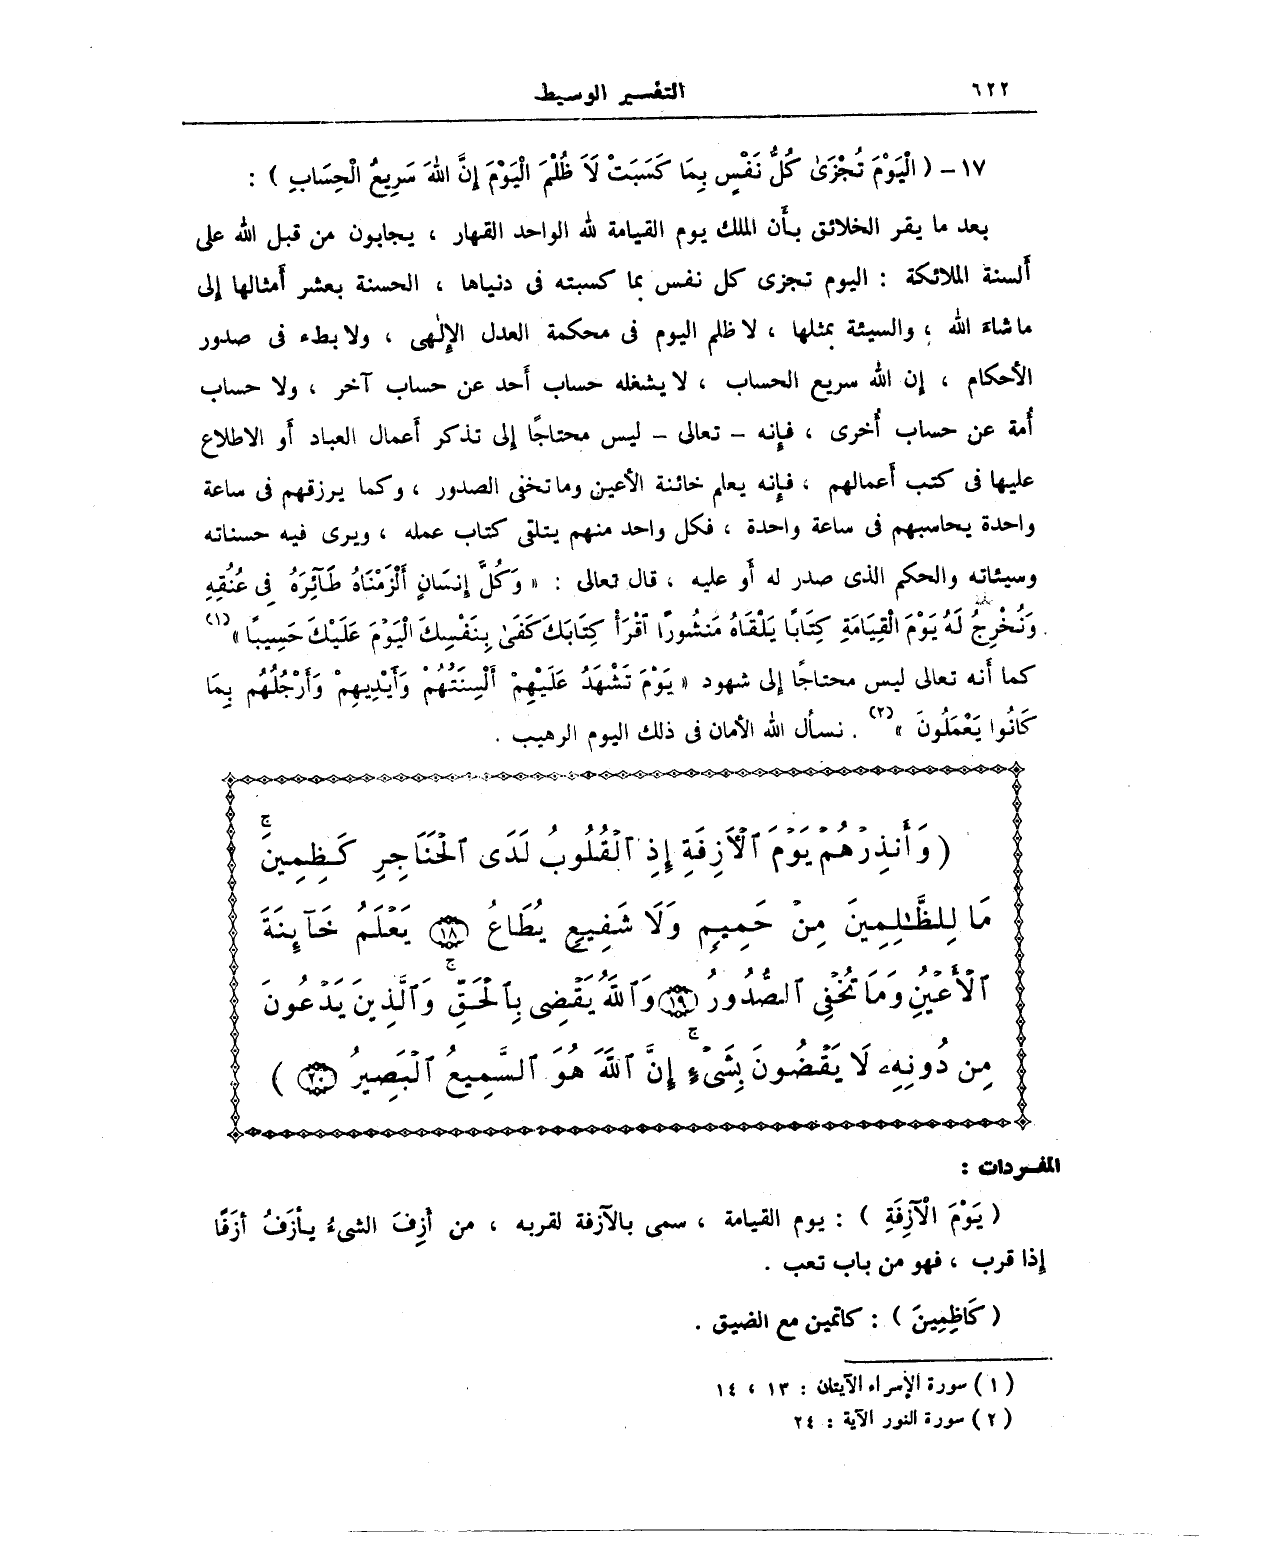 ٦٢٢
التفسير الوسيط
١٧ - ( الْيَوْمَ تُجْزَىٰ كُلُّ نَفْسٍ بِمَا كَسَبَتْ لَا ظُلْمَ الْيَوْمَ إِنَّ اللَّهَ سَرِيعُ الْحِسَابِ ) :
بعد ما يقر الخلائق بأن الملك يوم القيامة لله الواحد القهار ، يجابون من قبل الله على
ألسنة الملائكة : اليوم تجزى كل نفس بما كسبته فى دنياها ، الحسنة بعشر أمثالها إلى
ما شاءَ الله ، والسيئة بمثلها ، لا ظلم اليوم فى محكمة العدل الإلٰهى ، ولا بطء فى صدور
الأحكام ، إن الله سريع الحساب ، لا يشغله حساب أحد عن حساب آخر ، ولا حساب
أُمة عن حساب أُخرى ، فإنه - تعالى - ليس محتاجًا إلى تذكر أعمال العباد أو الاطلاع
عليها فى كتب أعمالهم ، فإنه يعلم خائنة الأعين وما تخفى الصدور ، وكما يرزقهم فى ساعة
واحدة يحاسبهم فى ساعة واحدة ، فكل واحد منهم يتلقى كتاب عمله ، ويرى فيه حسناته
وسيئاته والحكم الذى صدر له أو عليه ، قال تعالى : « وَكُلَّ إِنسَانٍ أَلْزَمْنَاهُ طَآئِرَهُ فِى عُنُقِهِ
وَنُخْرِجُ لَهُ يَوْمَ الْقِيَامَةِ كِتَابًا يَلْقَاهُ مَنشُورًا اقْرَأْ كِتَابَكَ كَفَىٰ بِنَفْسِكَ الْيَوْمَ عَلَيْكَ حَسِيبًا » (١)
كما أنه تعالى ليس محتاجًا إلى شهود « يَوْمَ تَشْهَدُ عَلَيْهِمْ أَلْسِنَتُهُمْ وَأَيْدِيهِمْ وَأَرْجُلُهُم بِمَا
كَانُوا يَعْمَلُونَ » (٢) . نسأل الله الأمان فى ذلك اليوم الرهيب .
( وَأَنذِرْهُمْ يَوْمَ ٱلْأَزِفَةِ إِذِ ٱلْقُلُوبُ لَدَى ٱلْحَنَاجِرِ كَـٰظِمِينَ ۚ
مَا لِلظَّـٰلِمِينَ مِنْ حَمِيمٍ وَلَا شَفِيعٍ يُطَاعُ ١٨ يَعْلَمُ خَآئِنَةَ
ٱلْأَعْيُنِ وَمَا تُخْفِى ٱلصُّدُورُ ١٩ وَٱللَّهُ يَقْضِى بِٱلْحَقِّ ۚ وَٱلَّذِينَ يَدْعُونَ
مِن دُونِهِۦ لَا يَقْضُونَ بِشَىْءٍ ۚ إِنَّ ٱللَّهَ هُوَ ٱلسَّمِيعُ ٱلْبَصِيرُ ٢٠ )
المفردات :
( يَوْمَ الْآزِفَةِ ) : يوم القيامة ، سمى بالآزفة لقربه ، من أَزِفَ الشىءُ يأزَفُ أزَفًا
إذا قرب ، فهو من باب تعب .
( كَاظِمِينَ ) : كاتمين مع الضيق .
(١) سورة الإسراء الآيتان : ١٣ ، ١٤
(٢) سورة النور الآية : ٢٤